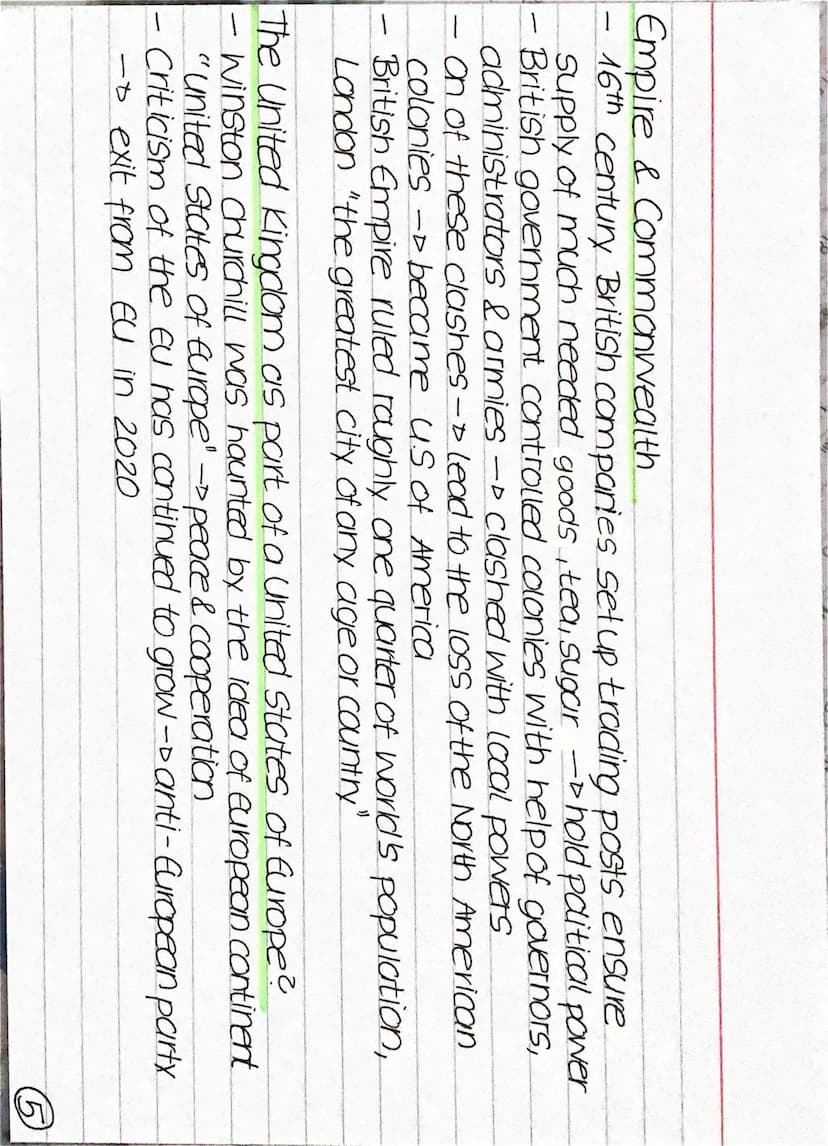 Empire & Commonwealth
- 16th century British companies set up trading posts ensure
supply of much needed goods, tea, sugar → hold political power
- British government controlled colonies with help of governors,
administrators & armies → clashed with local powers
- on of these clashes → lead to the loss of the North American
colonies → became U.S of America
- British Empire ruled roughly one quarter of world's population,
London "the greatest city of any age or country"
The United Kingdom as part of a United States of Europe?
- Winston Churchill was haunted by the idea of European continent
"United States of Europe" → peace & cooperation
- Criticism of the EU has continued to grow → anti-European party
→ exit from EU in 2020
5